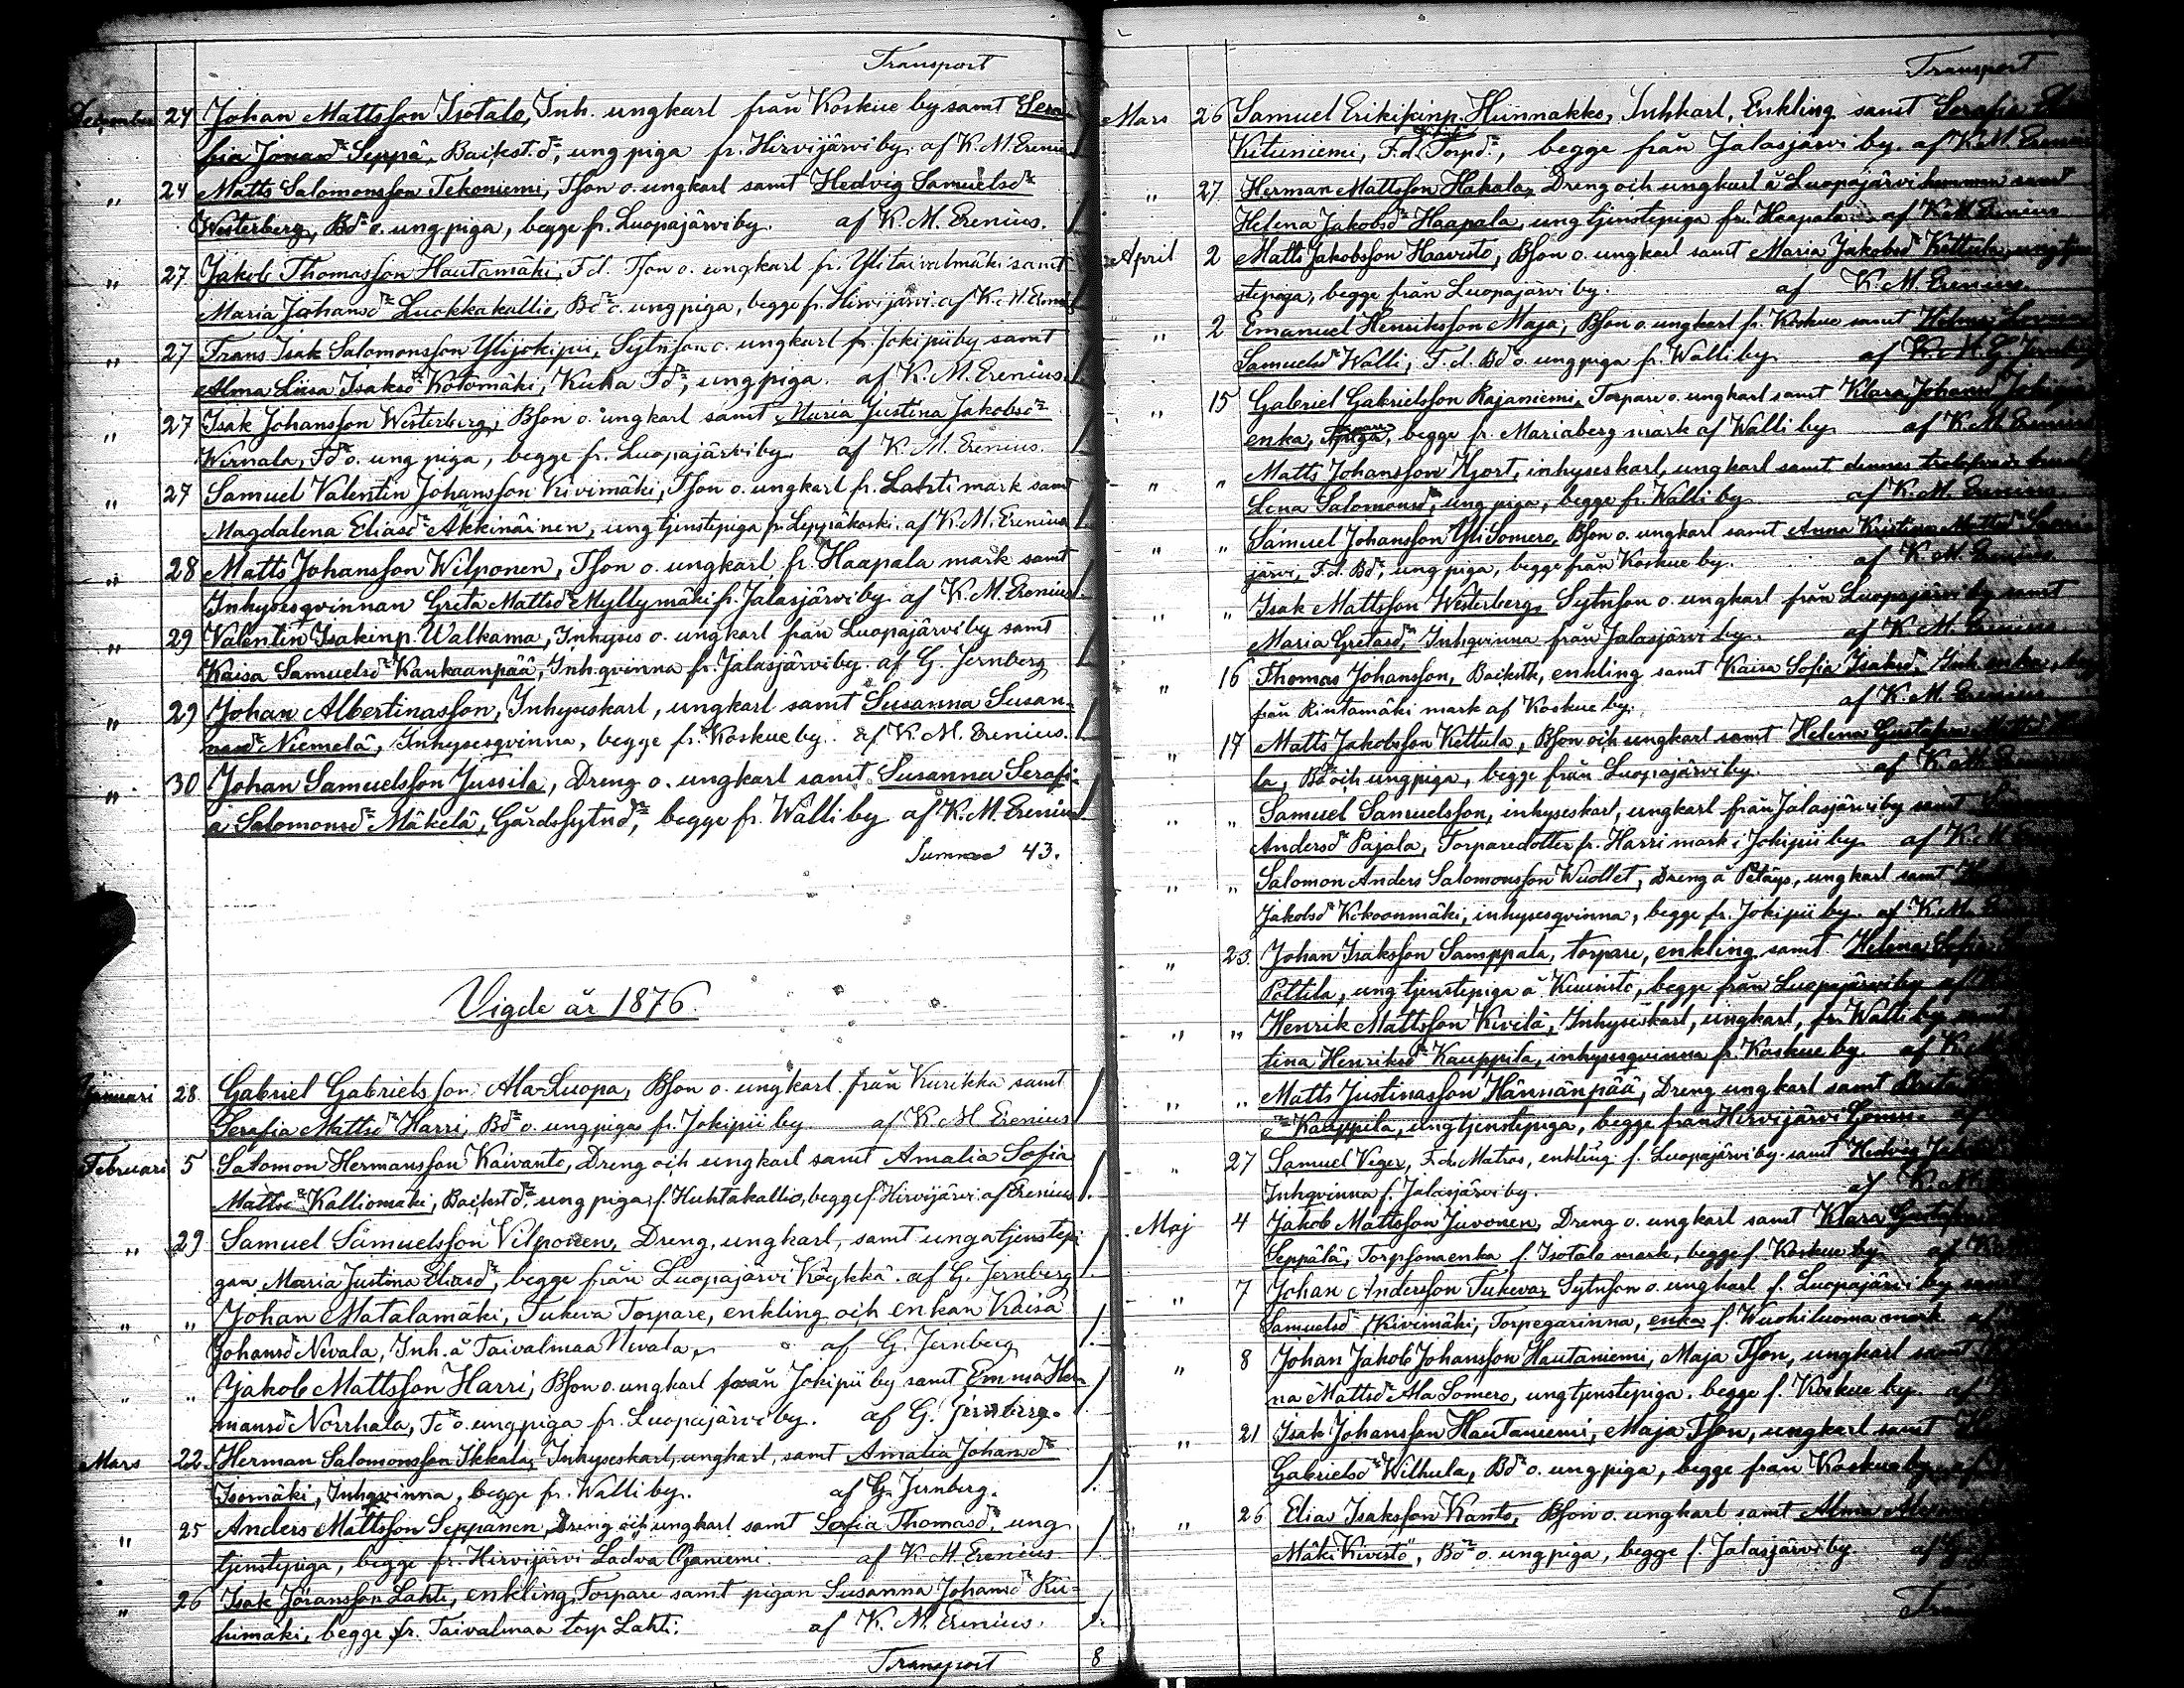 Transport
December 24 Johan Mattsson Isotalo, Inh. ungkarl från Koskue by samt Sera-
fia Jonasdr Seppä, Backst.dr, ung piga fr. Hirvijärvi by af K. M. Erenius
" 24 Matts Salomonsson Tekoniemi, Tson o. ungkarl samt Hedvig Samuelsdr
Westerberg, Bdr o. ung piga, begge fr. Luopajärvi by. af K. M. Erenius.
" 27 Jakob Thomasson Hautamäki, F.d. Tson o. ungkarl fr. Ylitaivalmäki samt
Maria Johansdr Luokkakallio, Bdr o. ung piga, begge fr. Hirvijärvi. af K. M. Erenius
" 27 Frans Isak Salomonsson Ylijokipii, Sytnson o. ungkarl fr. Jokipii by samt
Alma Liisa Isaksdr Kotomäki, Kuha Tdr, ung piga. af K. M. Erenius.
" 27 Isak Johansson Westerberg, Bson o. ungkarl samt Maria Justina Jakobsdr
Wirnala, Tdr o. ung piga, begge fr. Luopajärvi by. af K. M. Erenius.
" 27 Samuel Valentin Johansson Kivimäki, Tson o. ungkarl fr. Lahti mark samt
Magdalena Eliasdr Äkkinäinen, ung tjenstepiga fr. Leppäkoski. af K. M. Erenius
" 28 Matts Johansson Wilponen, Tson o. ungkarl fr. Haapala mark samt
Inhysesqvinnan Greta Mattsdr Myllymäki fr. Jalasjärvi by af K. M. Erenius.
" 29 Valentin Isakinp. Walkama, Inhyses o. ungkarl från Luopajärvi by samt
Kaisa Samuelsdr Kaukaanpää, Inh.qvinna fr. Jalasjärvi by. af G. Jernberg
" 29 Johan Albertinasson, Inhyseskarl, ungkarl samt Susanna Susan-
nasdr Niemelä, Inhysesqvinna, begge fr. Koskue by. af K. M. Erenius.
" 30 Johan Samuelsson Jussila, Dreng o. ungkarl samt Susanna Serafi-
a Salomonsdr Mäkelä, Gårdssytndr, begge fr. Walli by af K. M. Erenius
Summa 43.
Vigde år 1876.
Januari 28. Gabriel Gabrielsson Ala-Luopa, Bson o. ungkarl från Kurikka samt
Serafia Mattsdr Harri, Bdr o. ung piga fr. Jokipii by af K. M. Erenius
Februari 5 Salomon Hermansson Kaivanto, Dreng och ungkarl samt Amalia Sofia
Mattsdr Kalliomäki, Backstdr, ung piga f. Huhtakallio, begge f. Hirvijärvi. af Erenius
" 29 Samuel Samuelsson Vilponen, Dreng, ungkarl, samt unga tjenstepi
gan Maria Justina Eliasdr, begge från Luopajärvi Köykkä. af G. Jernberg
" " Johan Matalamäki, Tukeva Torpare, enkling och enkan Kaisa
Johansdr Nevala, Inh. å Taivalmaa Nevala, af G. Jernberg
" " Jakob Mattsson Harri, Bson o. ungkarl från Jokipii by samt Emma Her
mansdr Norrhala, Tdr o. ung piga fr. Luopajärvi by. af G. Jernberg.
Mars 22. Herman Salomonsson Ikkala, Inhyseskarl, ungkarl, samt Amalia Johansdr
Isomäki, Inhqvinna, begge fr. Walli by. af G. Jernberg.
" 25 Anders Mattsson Seppänen, Dreng och ungkarl samt Sofia Thomasdr, ung
tjenstepiga, begge fr. Hirvijärvi Ladva Ojaniemi. af K. M. Erenius
" 26 Isak Jöransson Lahti, enkling, Torpare samt pigan Susanna Johansdr Rii-
himäki, begge fr. Taivalmaa torp Lahti. af K. M. Erenius.
Transport 8
Transport
Mars 26 Samuel Erikinp. Hiinnakko, Inhkarl, Enkling samt Serafia
Kituniemi, F.d. Torpdr, begge från Jalasjärvi by. af K. M. Erenius
" 27. Herman Mattsson Hakala, Dreng och ungkarl å Luopajärvi samt
Helena Jakobsdr Haapala, ung tjenstepiga fr. Haapala af K. M. Erenius
April 2 Matts Jakobsson Haavisto, Bson o. ungkarl samt Maria Jakobsdr Kettula, ung tjen
stepiga, begge från Luopajärvi by. af K. M. Erenius.
" 2 Emanuel Henriksson Maja, Bson o. ungkarl fr. Koskue samt
Samuelsdr Walli, F.d. Bdr o. ung piga fr. Walli by af
" 15 Gabriel Gabrielsson Rajaniemi, Torpare o. ungkarl samt Klara Johansdr
enka, begge fr. Mariaberg mark af Walli by af K. M. Erenius
" " Matts Johansson Hjort, inhyseskarl, ungkarl samt dennes trolofvade
Lena Salomonsdr, ung piga, begge fr. Walli by af K. M. Erenius
" " Samuel Johansson Yli Somero, Bson o. ungkarl samt Anna Kristina Mattsdr
järvi, F.d. Bdr, ung piga, begge från Koskue by. af K. M. Erenius.
" " Isak Mattsson Westerberg, Sytnson o. ungkarl från Luopajärvi by samt
Maria Gretasdr, Inhqvinna från Jalasjärvi by. af K. M. Erenius
" 16 Thomas Johansson, Backstk, enkling samt Kaisa Sofia Isaksdr, Inh enka,
från Rintamäki mark af Koskue by. af K. M. Erenius
" 17 Matts Jakobsson Kettula, Bson och ungkarl samt Helena Gustafva Mattsdr
la, Bdr och ung piga, begge från Luopajärvi by. af K. M.
" " Samuel Samuelsson, inhyseskarl, ungkarl från Jalasjärvi by samt
Andersdr Pajala, Torparedotter fr. Harri mark i Jokipii by af K. M.
" " Salomon Anders Salomonsson Wuollet, Dreng å Petäys, ungkarl samt
Jakobsdr Kokoonmäki, inhysesqvinna, begge fr. Jokipii by. af K. M.
" 23. Johan Isaksson Samppala, torpare, enkling samt Helena Sofia
Pottila, ung tjenstepiga å Kiuinsto, begge från Luopajärvi by af
" " Henrik Mattsson Kivilä, Inhyseskarl, ungkarl, fr. Walli by samt
tina Henriksdr Kauppila, inhysesqvinna fr. Koskue by. af K. M.
" " Matts Justinasson Hännänpää, Dreng ungkarl samt
dr Kauppila, ung tjenstepiga, begge från Hirvijärvi
" 27 Samuel Veger, F.d. Matros, enkling f. Luopajärvi by samt Hedvig
Inhqvinna f. Jalasjärvi by. af K. M.
Maj 4 Jakob Mattsson Juvonen, Dreng o. ungkarl samt Klara
Seppälä, Torpsonaenka f. Isotalo mark, begge f. Koskue by. af
" 7 Johan Andersson Tukeva, Sytnson o. ungkarl f. Luopajärvi by samt
Samuelsdr Kivimäki, Torpegarinna, enka f. Wuohiluoma mark
" 8 Johan Jakob Johansson Hautaniemi, Maja Tson, ungkarl samt
na Mattsdr Ala Somero, ung tjenstepiga. begge f. Koskue by. af
" 21 Isak Johansson Hautaniemi, Maja Tson, ungkarl samt
Gabrielsdr Wilhula, Bdr o. ung piga, begge från Koskue by. af
" 26 Elias Isaksson Kanto, Bson o. ungkarl samt Alma
Mäki Kivistö, Bdr o. ung piga, begge f. Jalasjärvi by. af